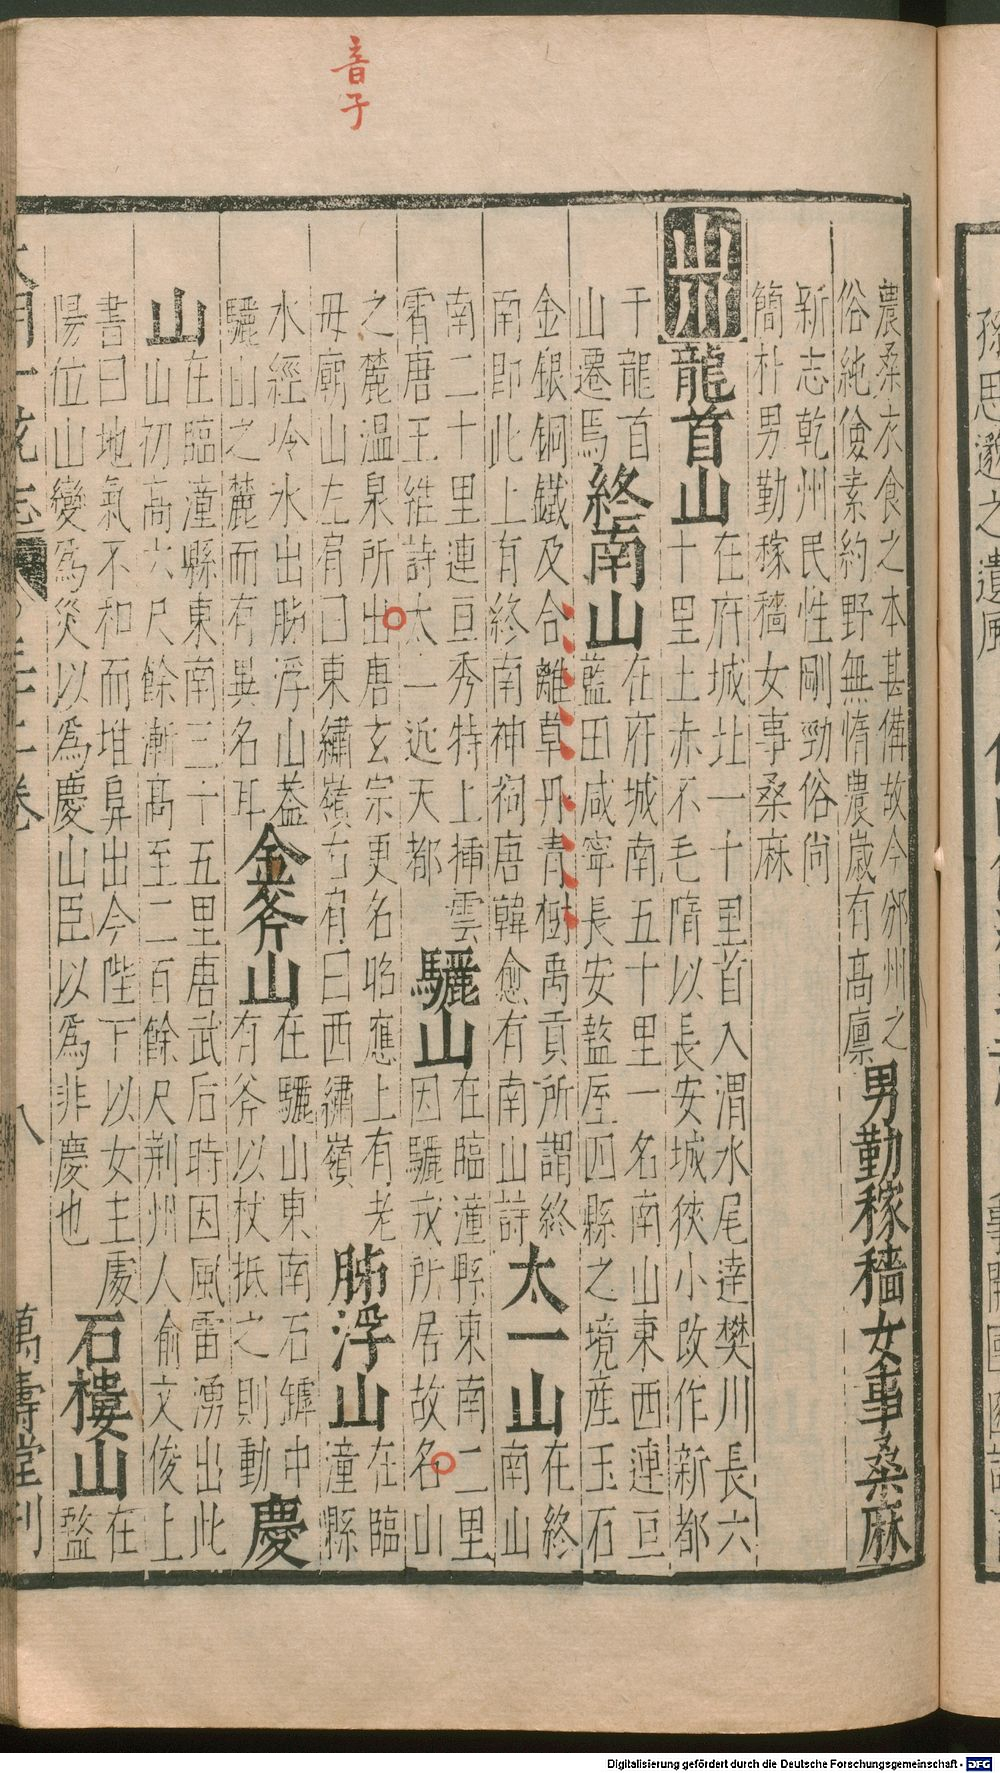 音子
孫思邈之遺風
農桑衣食之本甚備故今邠州之
俗純儉素約野無惰農歲有高廩
男勤稼穡女事桑麻
新志乾州民性剛勁俗尚
簡朴男勤稼穡女事桑麻
山川
龍首山
在府城北一十里首入渭水尾達樊川長六
十里土赤不毛隋以長安城狹小改作新都
于龍首
山遷焉
終南山
在府城南五十里一名南山東西連亘
藍田咸寧長安盩厔四縣之境產玉石
金銀銅鐵及合離草丹青樹禹貢所謂終
南即此上有終南神祠唐韓愈有南山詩
太一山
在終
南山
南二十里連亘秀特上揷雲
霄唐王維詩太一近天都
驪山
在臨潼縣東南二里
因驪戎所居故名山
之麓溫泉所出唐玄宗更名昭應上有老
母廟山左肩曰東繡嶺右肩曰西繡嶺
肺浮山
在臨
潼縣
水經泠水出肺浮山蓋
驪山之麓而有異名耳
金斧山
在驪山東南石罅中
有斧以杖抵之則動
慶
山
在臨潼縣東南三十五里唐武后時因風雷湧出此
山初高六尺餘漸高至二百餘尺荆州人俞文俊上
書曰地氣不和而堆阜出今陛下以女主處
陽位山變爲災以爲慶山臣以爲非慶也
石樓山
在
盩
大明一統志 三十二卷 八 萬壽堂刊
Digitalisierung gefördert durch die Deutsche Forschungsgemeinschaft - DFG